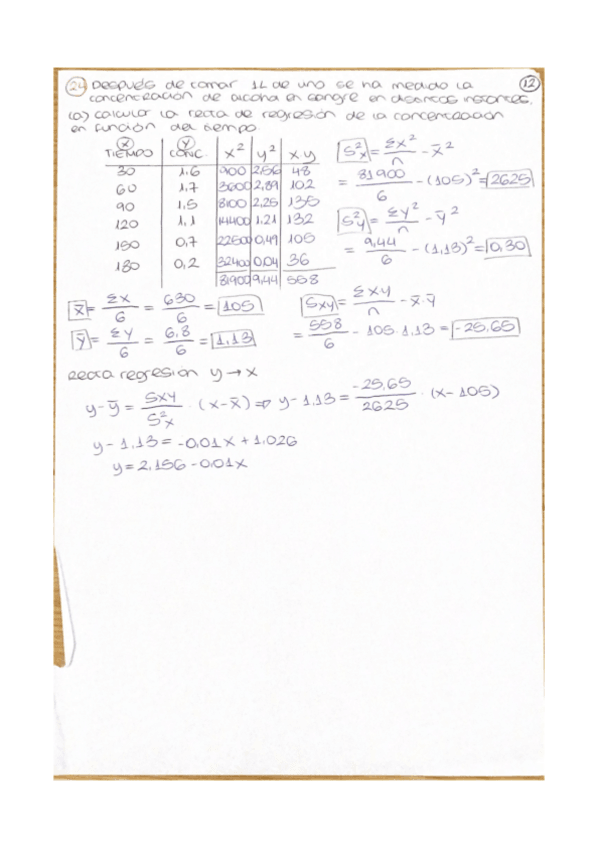 24 Después de comar 1L de uno se ha medido la 12
concentración de alcohol en sangre en distintos instantes.
(a) calcular la recta de regresión de la concentración
en función del tiempo.
x y
TIEMPO CONC. x² y² xy
30 1,6 900 2,56 48
60 1,7 3600 2,89 102
90 1,5 8100 2,25 135
120 1,1 14400 1,21 132
150 0,7 22500 0,49 105
180 0,2 32400 0,04 36
81900 9,44 558
S²x = Σx²/n - x̄²
= 81900/6 - (105)² = 2625
S²y = Σy²/n - ȳ²
= 9,44/6 - (1,13)² = 0,30
x̄ = Σx/6 = 630/6 = 105
ȳ = Σy/6 = 6,8/6 = 1,13
Sxy = Σxy/n - x̄·ȳ
= 558/6 - 105·1,13 = -25,65
Recta regresion y → x
y-ȳ = Sxy/S²x · (x-x̄) ⇒ y-1,13 = -25,65/2625 · (x-105)
y-1,13 = -0,01x + 1,026
y = 2,156 - 0,01x